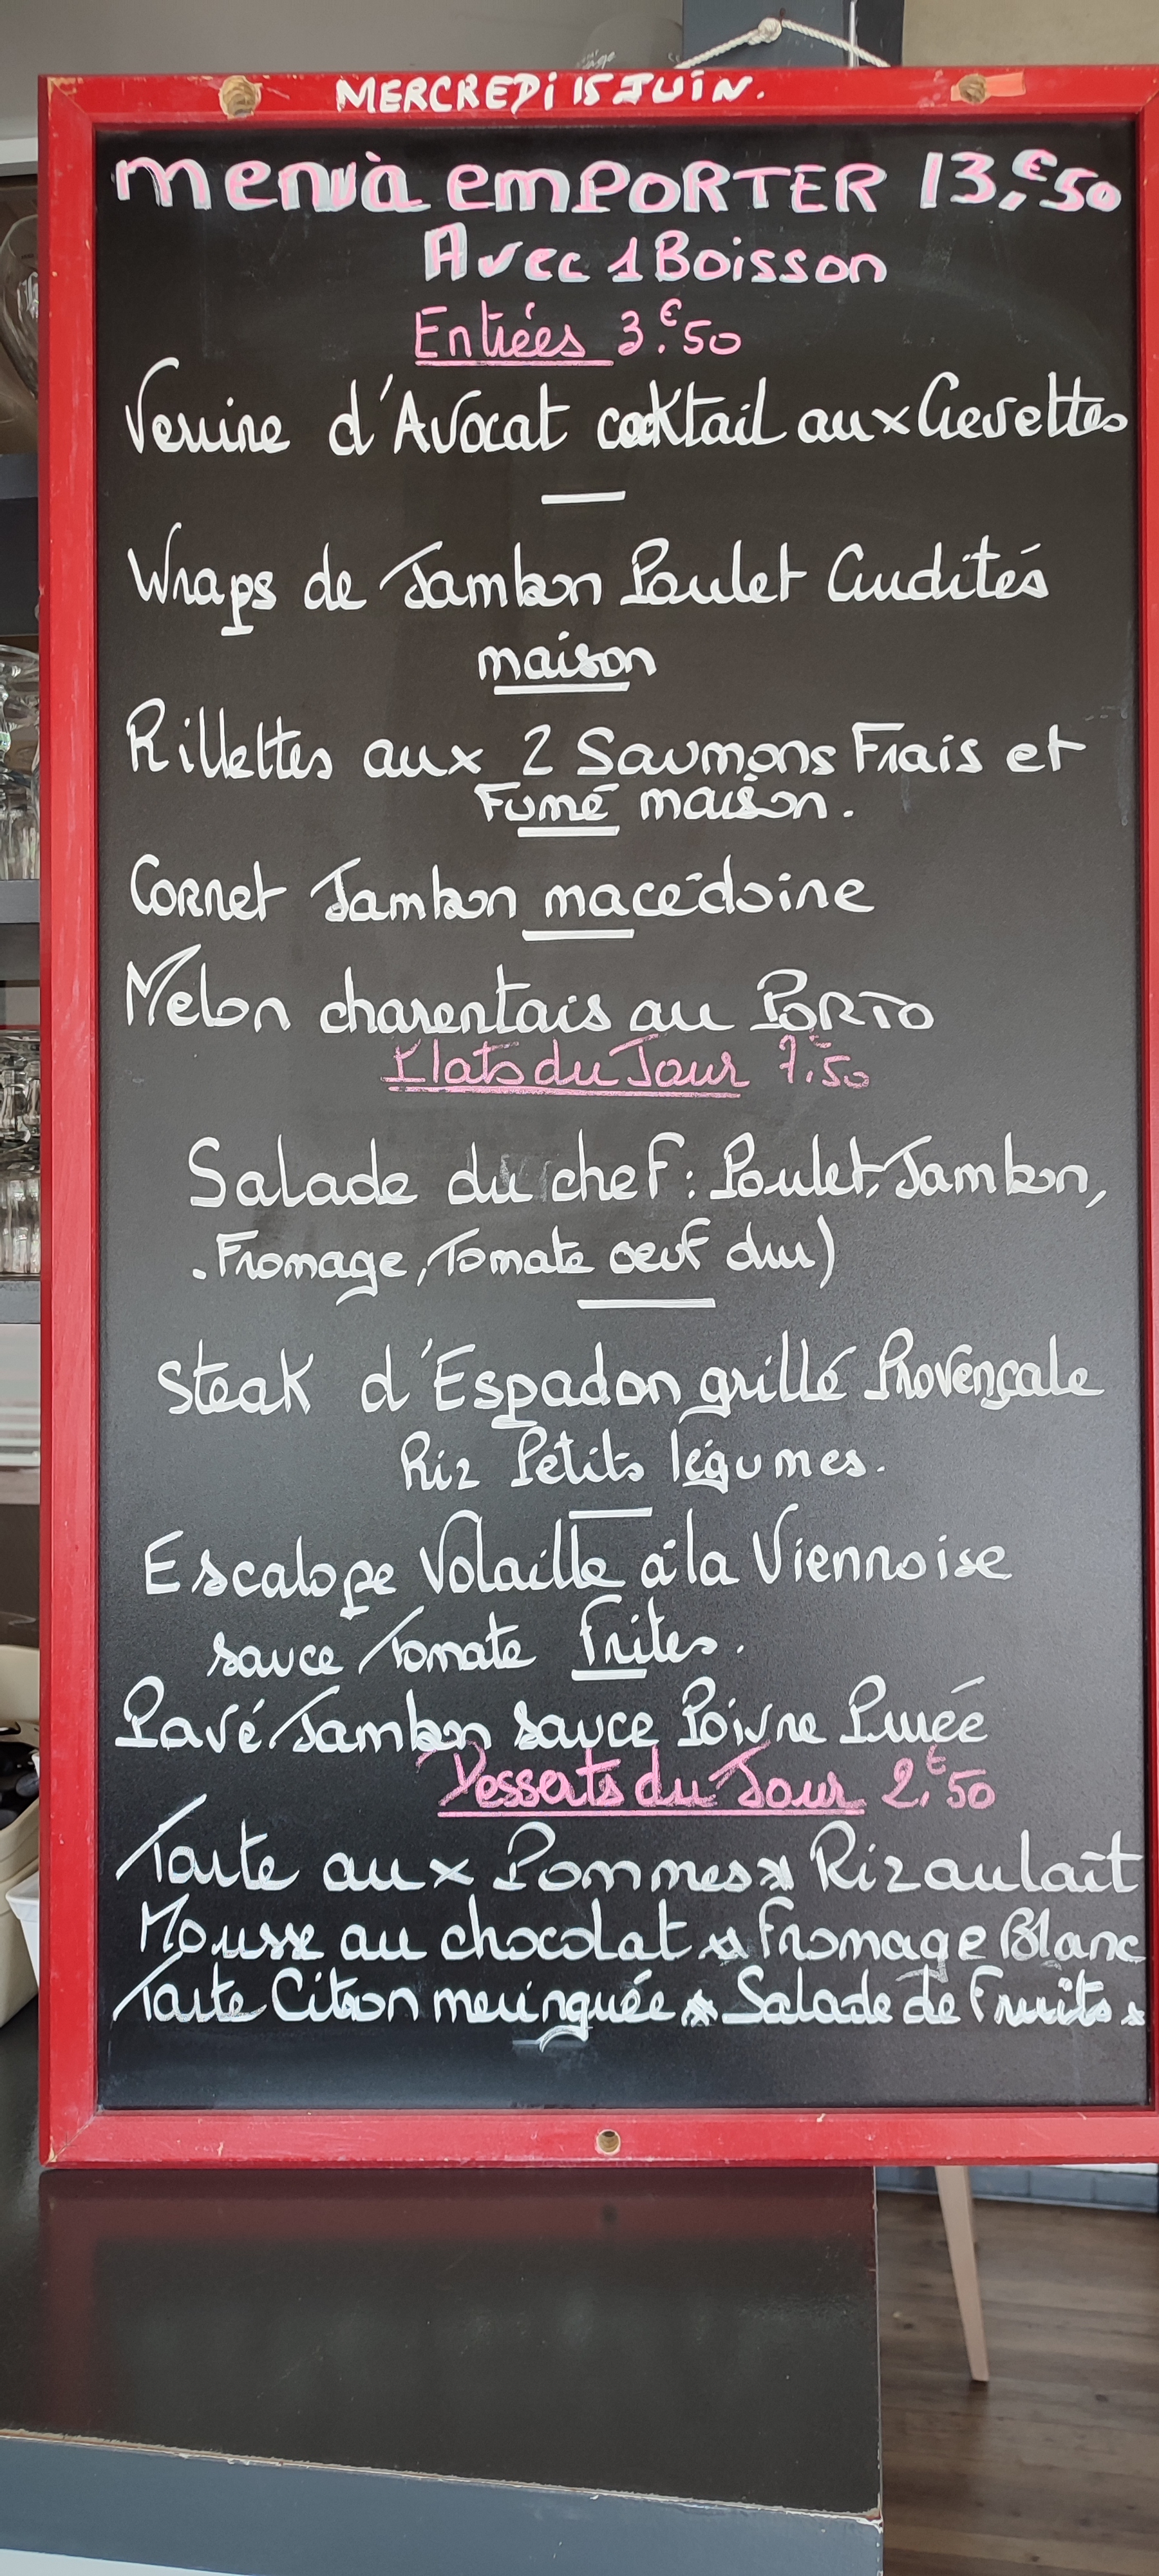 MERCREDI 15 JUIN.
menu à emPORTER 13,€50
Avec 1 Boisson
Entrées 3.€50
Verrine d'Avocat cocktail aux Crevettes
Wraps de Jambon Poulet Crudités
maison
Rillettes aux 2 Saumons Frais et
Fumé maison.
Cornet Jambon macédoine
Melon charentais au PORTO
Plats du Jour 7.50
Salade du chef: Poulet, Jambon,
.Fromage, Tomate oeuf dur)
Steak d'Espadon grillé Provençale
Riz Petits légumes.
Escalope Volaille à la Viennoise
sauce Tomate frites.
Pavé Jambon sauce Poivre Purée
Desserts du Jour 2,€50
Tarte aux Pommes * Riz au lait
Mousse au chocolat * Fromage Blanc
Tarte Citron meringuée * Salade de Fruits *